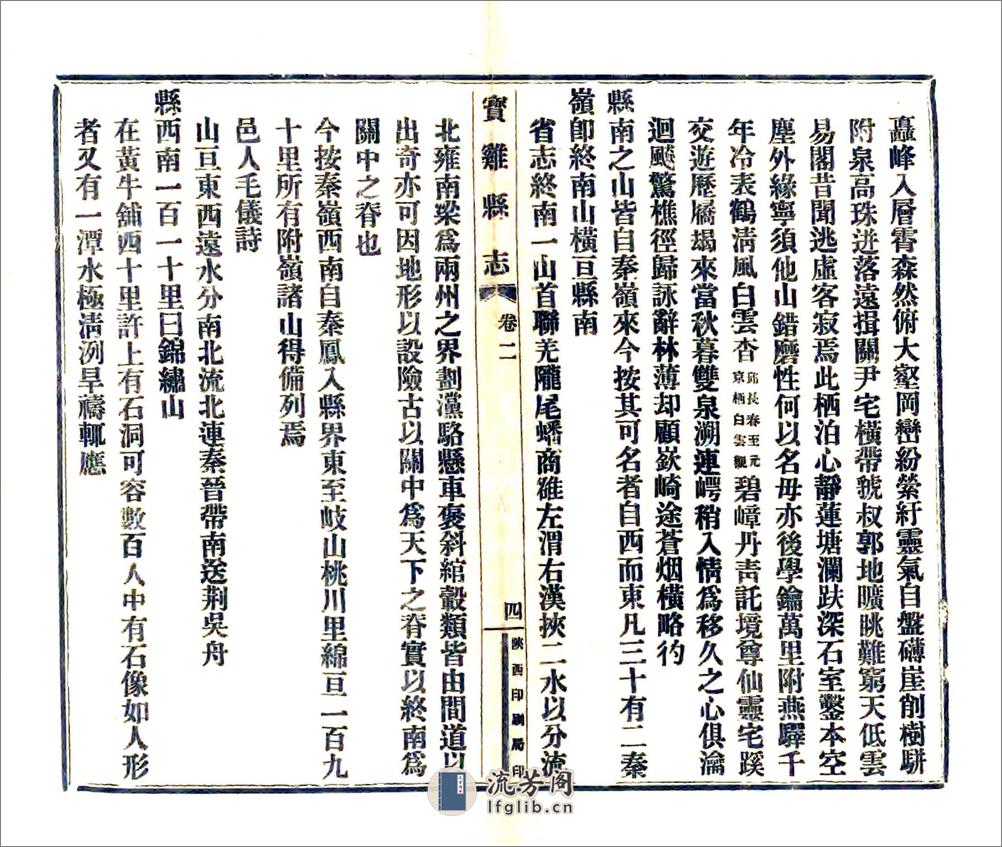 矗峰入層霄森然俯大壑岡巒紛縈紆靈氣自盤礴崖削樹駢
附泉高珠迸落遠揖關尹宅橫帶虢叔郭地曠眺難窮天低雲
易閣昔聞逃虛客寂焉此栖泊心靜蓮塘瀾趺深石室鑿本空
塵外緣寧須他山錯磨性何以名毋亦後學鑰萬里附燕驛千
年冷表鶴淸風白雲杳邱長春至元京栖白雲觀碧嶂丹靑託境尊仙靈宅蹊
交遊歷屩朅來當秋暮雙泉溯連崿稍入情為移久之心俱瀹
迴飈驚樵徑歸詠辭林薄却顧嶔崎途蒼烟橫略彴
縣南之山皆自秦嶺來今按其可名者自西而東凡三十有二秦
嶺卽終南山橫亘縣南
省志終南一山首聯羌隴尾蟠商雒左渭右漢挾二水以分流
寶雞縣志 卷二 四 陝西印刷局印
北雍南梁爲兩州之界劃灙駱懸車褒斜綰轂類皆由間道以
出奇亦可因地形以設險古以關中爲天下之脊實以終南爲
關中之脊也
今按秦嶺西南自秦鳳入縣界東至岐山桃川里綿亘一百九
十里所有附嶺諸山得備列焉
邑人毛儀詩
山亘東西遠水分南北流北連秦晉帶南送荆吳舟
縣西南一百一十里曰錦繡山
在黃牛舖西十里許上有石洞可容數百人中有石像如人形
者又有一潭水極淸洌旱禱輒應
流芳阁
lfglib.cn